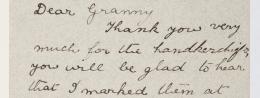 Dear Granny
Thank you very
much for the handkerchifs,
you will be glad to hear
that I marked them at